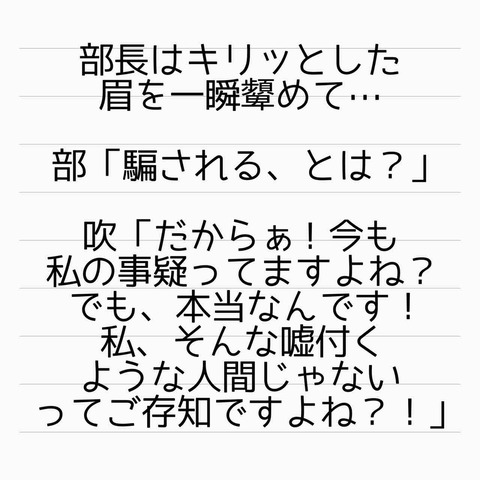 部長はキリッとした
眉を一瞬顰めて…
部「騙される、とは？」
吹「だからぁ！今も
私の事疑ってますよね？
でも、本当なんです！
私、そんな嘘付く
ような人間じゃない
ってご存知ですよね？！」